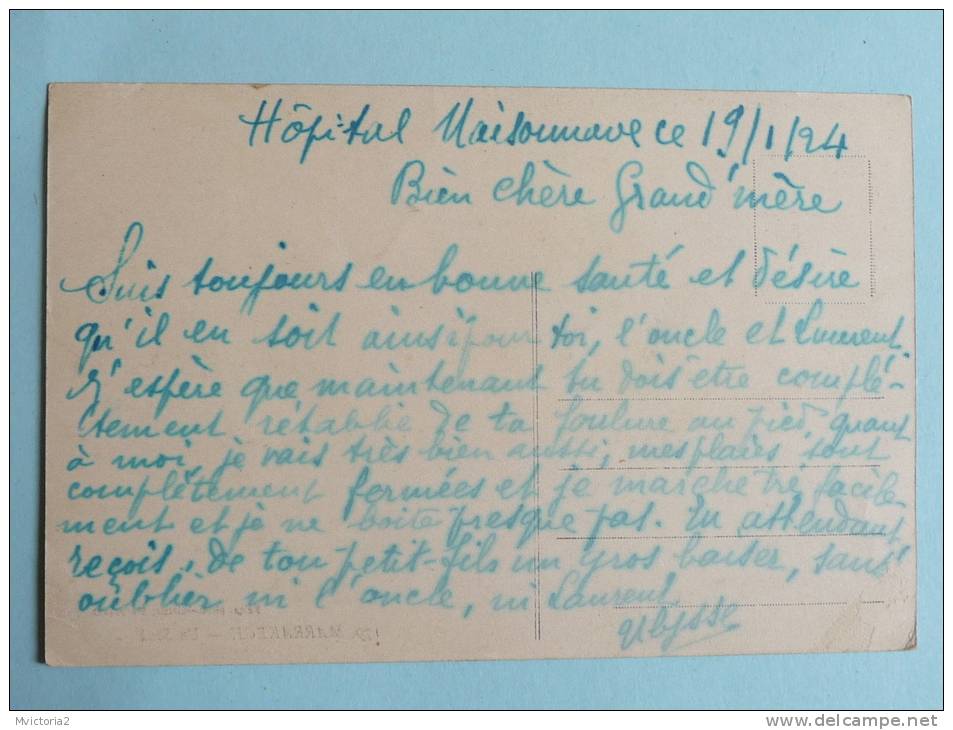 Hôpital Maisonnave ce 19/1/24
Bien chère Grand'mère
Suis toujours en bonne santé et désire
qu'il en soit ainsi pour toi, l'oncle et Laurent.
J'espère que maintenant tu dois être complé-
ctement rétablie de ta foulure au pied, quant
à moi, je vais très bien aussi, mes plaies sont
complètement fermées et je marche très facile-
ment et je ne boite presque pas. En attendant,
reçois, de ton petit-fils un gros baiser, sans
oublier ni l'oncle, ni Laurent
Ulysse
MARRAKECH
Mvictoria2
www.delcampe.net